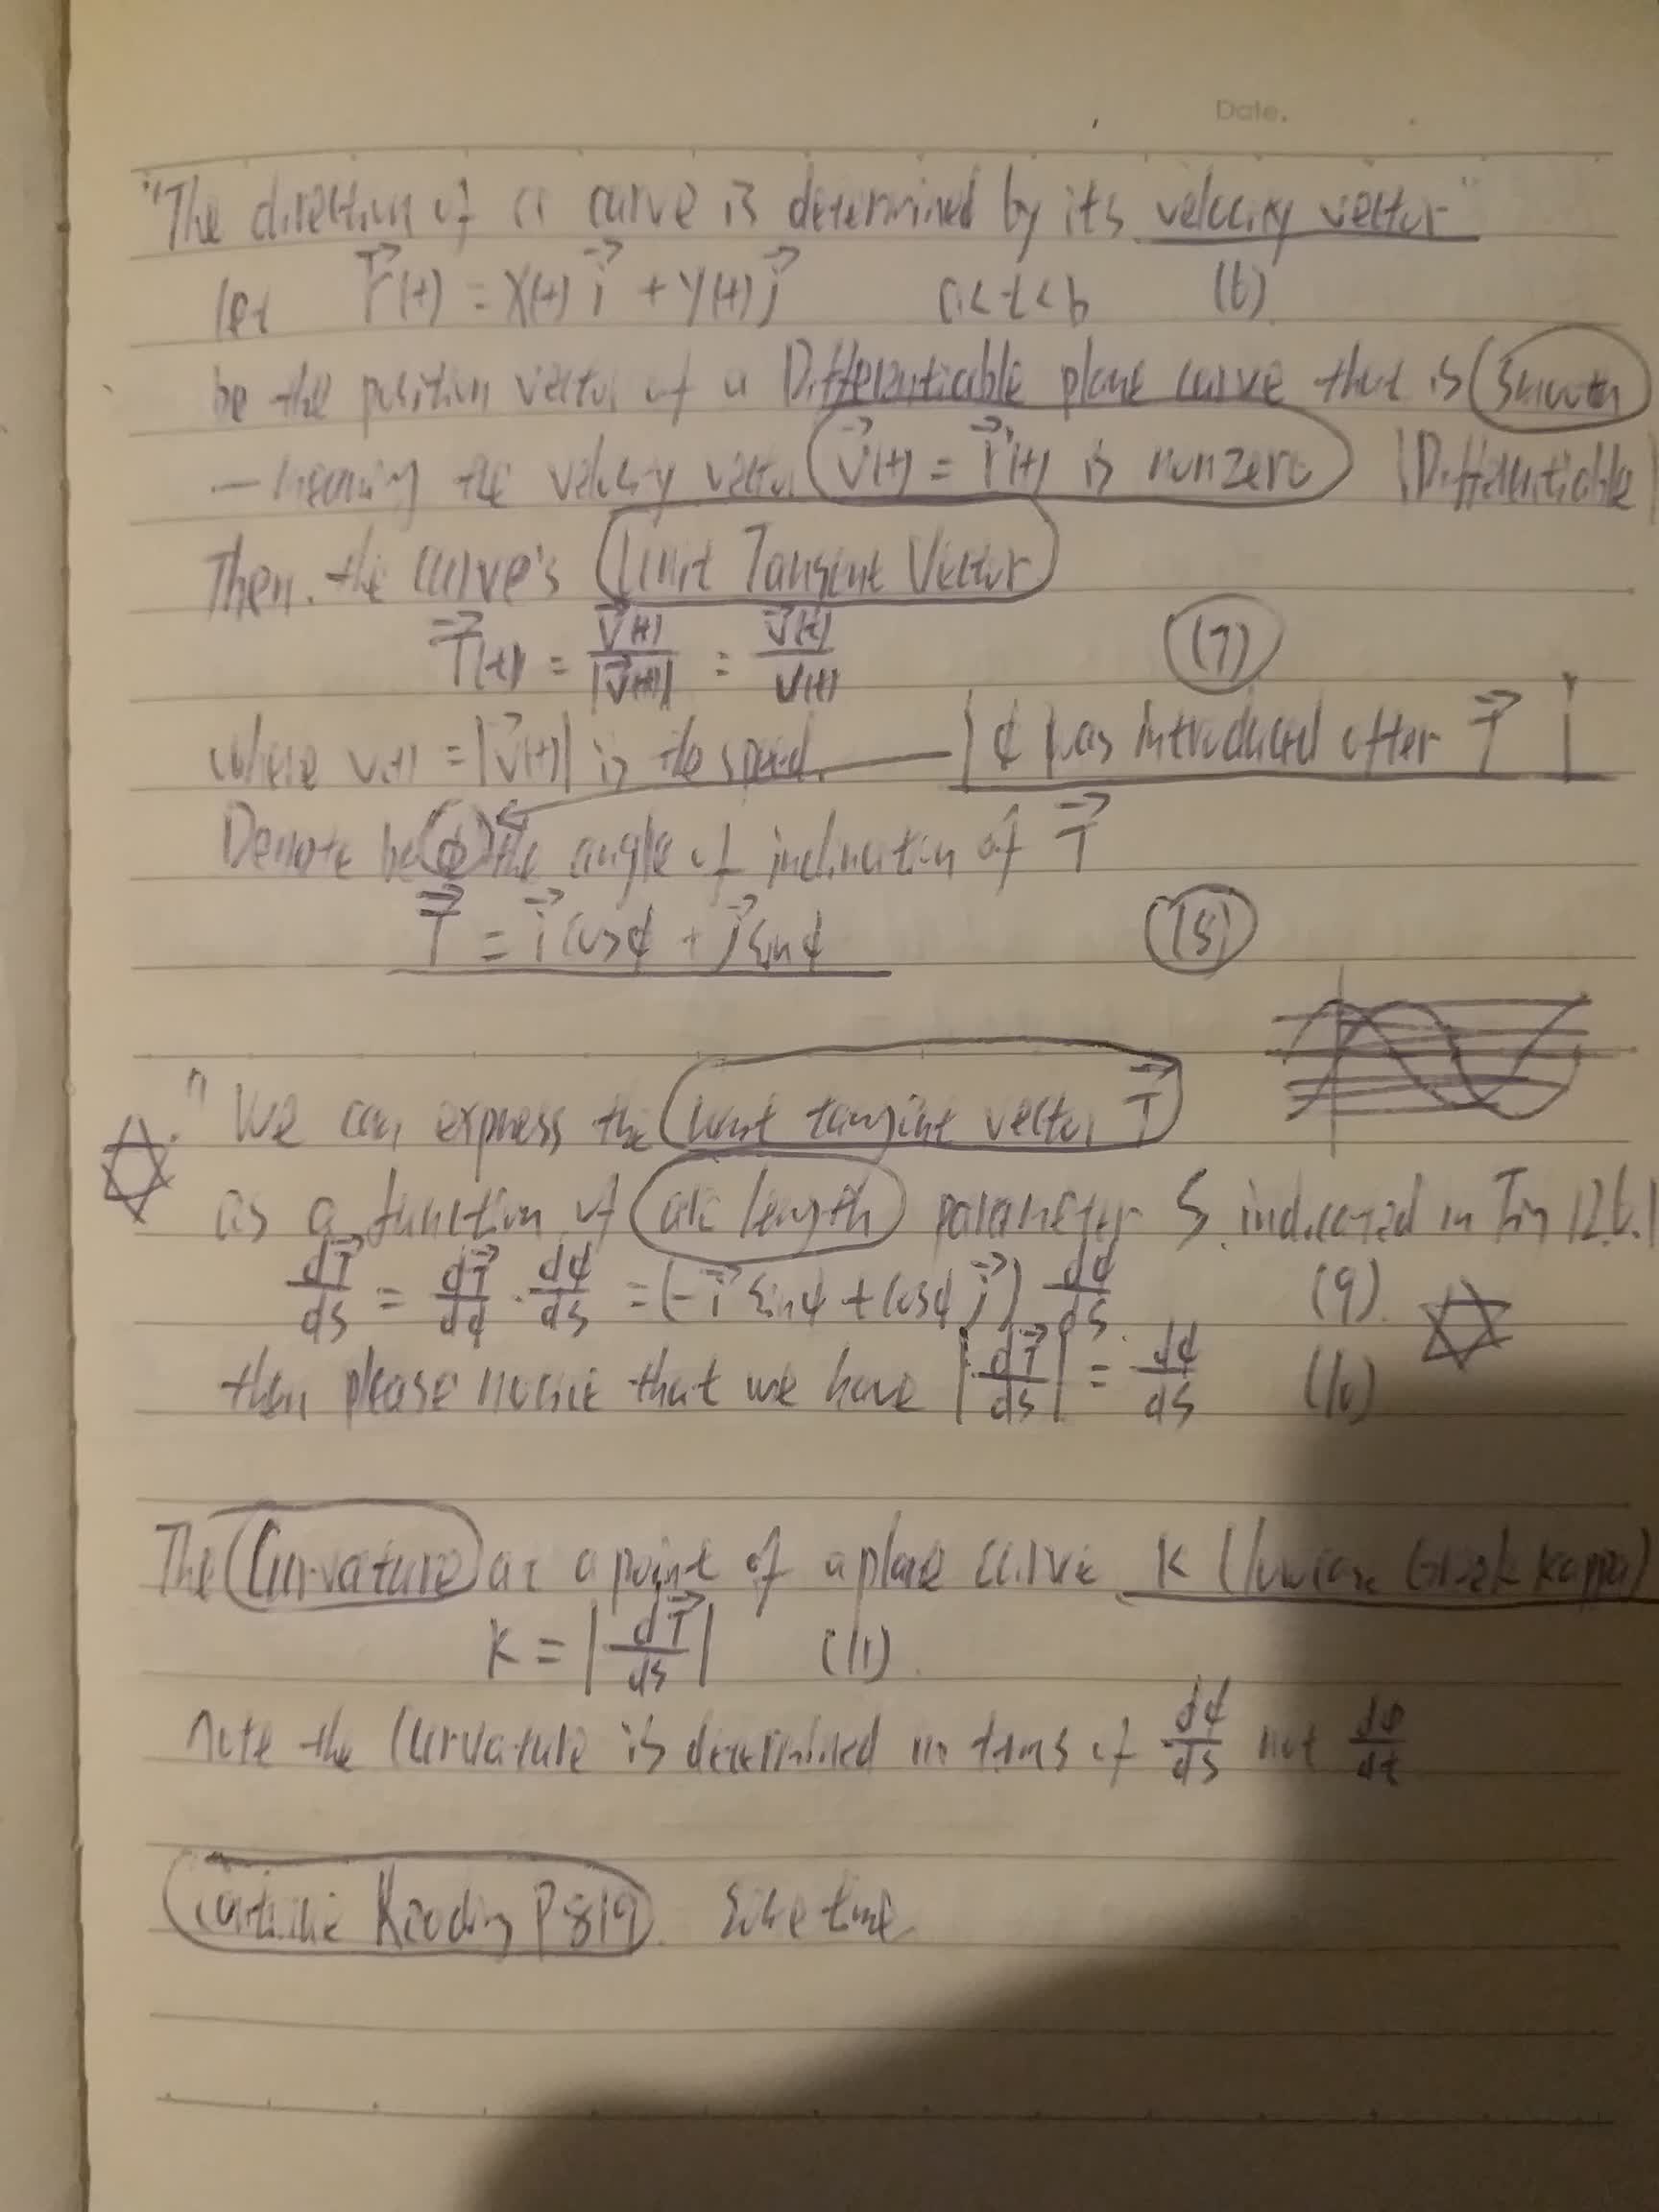 Date.
"The direction of a curve is determined by its velocity vector"
let r⃗(t) = x(t) i⃗ + y(t) j⃗ a<t<b (6)
be the position vector of a Differentiable plane curve that is smooth
— meaning the velocity vector v⃗(t) = r⃗'(t) is nonzero |Differentiable|
Then. the curve's Unit Tangent Vector
T⃗(t) = v⃗(t)/|v⃗(t)| = v⃗(t)/v(t) (7)
where v(t) = |v⃗(t)| is the speed. — | ϕ was introduced after T⃗ |
Denote be ϕ the angle of inclination of T⃗
T⃗ = i⃗ cosϕ + j⃗ sinϕ (8)
" We can express the unit tangent vector T⃗
as a function of arc length parameter S indicated in Fig 12.6.1
dT⃗/ds = dT⃗/dϕ · dϕ/ds = (-i⃗ sinϕ + cosϕ j⃗) dϕ/ds (9).
then please notice that we have |dT⃗/ds| = dϕ/ds (10)
The Curvature at a point of a plane curve K (lowcase Greek kappa)
K = |dT⃗/ds| (11).
note the Curvature is determined in terms of dϕ/ds not dϕ/dt
Continue Reading P819. time